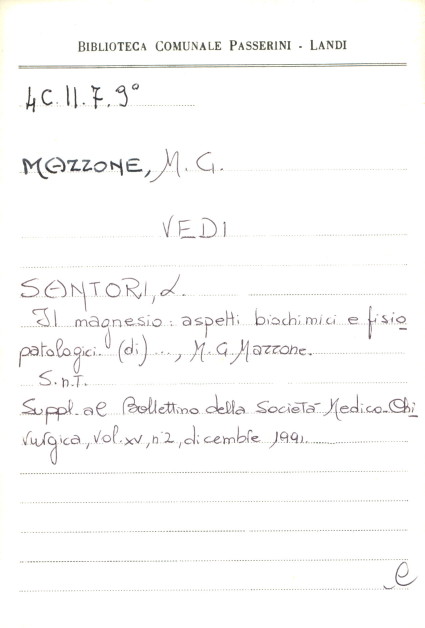 BIBLIOTECA COMUNALE PASSERINI - LANDI
4C.II.7.9°
MAZZONE, M. G.
VEDI
SANTORI, L.
Il magnesio: aspetti biochimici e fisio
patologici. (di) ..., M. G. Mazzone.
S.n.T.
Suppl. al Bollettino della Società Medico-Chi
rurgica, vol. XV, n°2, dicembre 1991.
e